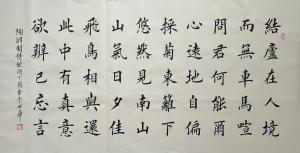 結廬在人境
而無車馬喧
問君何能爾
心遠地自偏
採菊東籬下
悠然見南山
山氣日夕佳
飛鳥相與還
此中有真意
欲辨已忘言
陶淵明詩